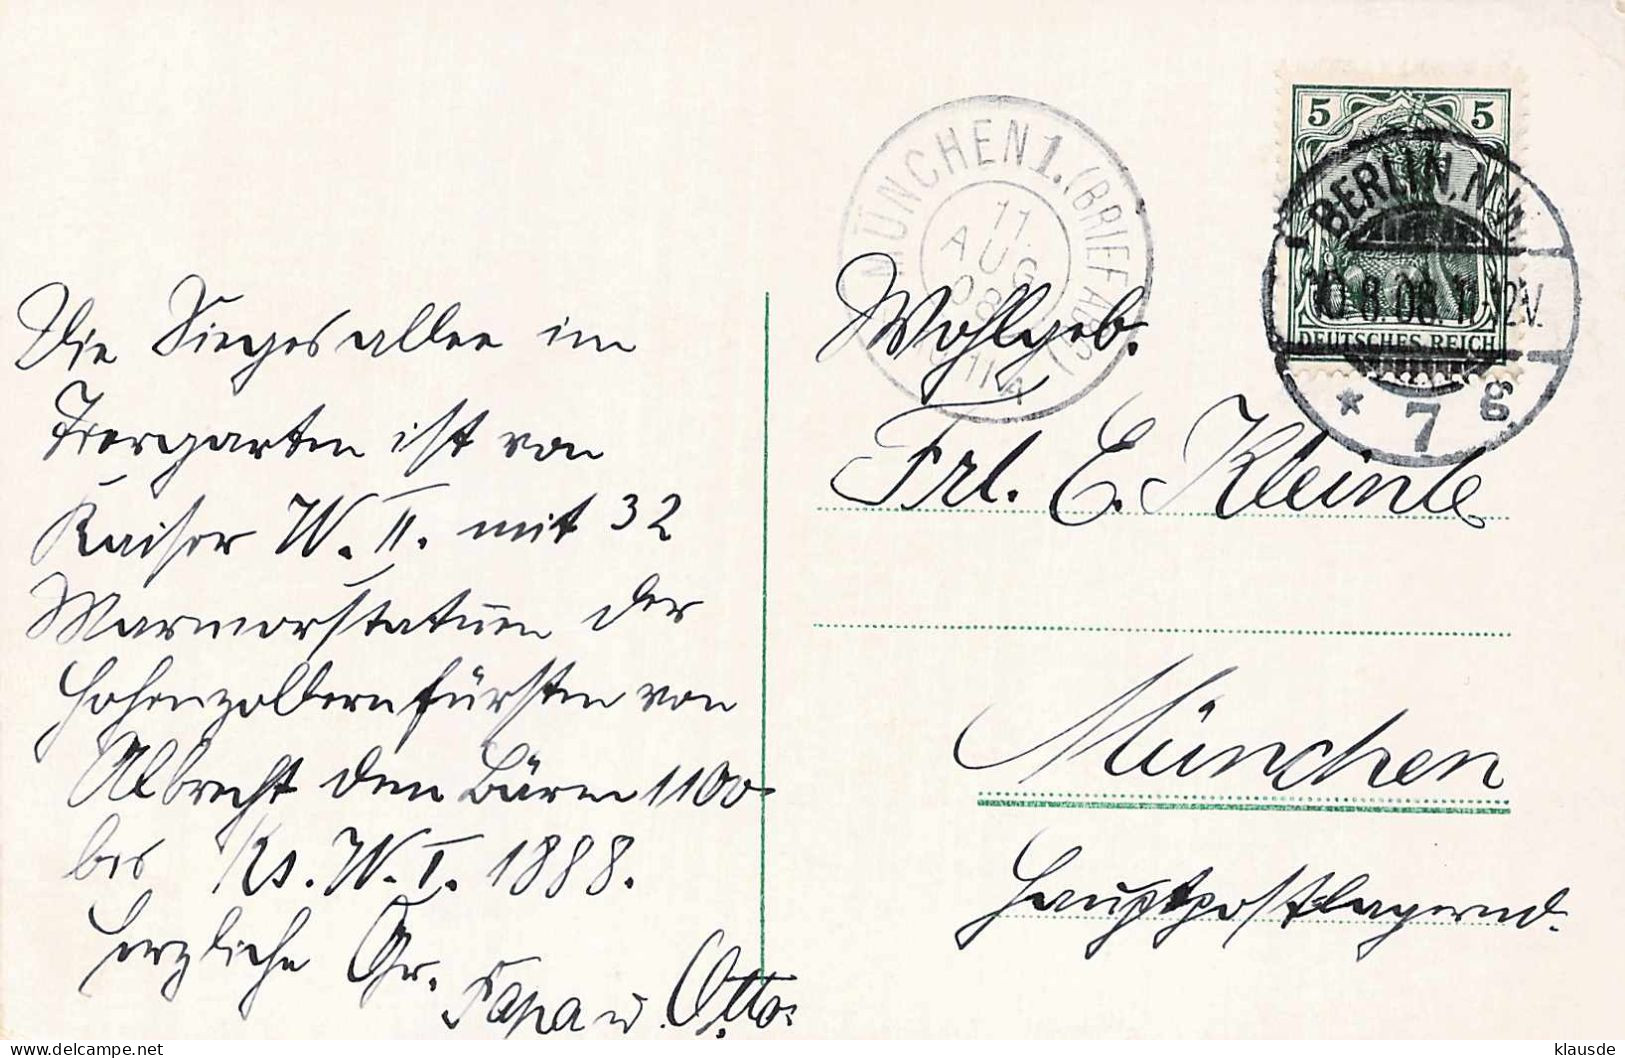 Die Siegesallee im
Tiergarten ist von
Kaiser W. II. mit 32
Marmorstatuen der
Hohenzollernfürsten von
Albrecht dem Bären 1100
bis Ks. W. I. 1888.
Herzliche Gr.
Papa u. Otto
MÜNCHEN 1. (BRIEFABG)
11
AUG
08
11 A
5 5
DEUTSCHES REICH
BERLIN, N.W.
10.8.08. 11-12V.
* 7 g
Wohlgeb.
Frl. E. Kleinle
München
Hauptpostlagernd.
klausde